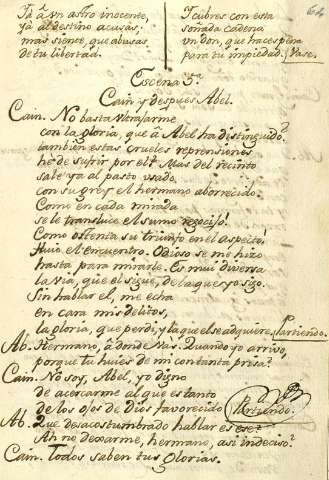 64
Ya á un astro inocente,
ya al destino acusas,
mas siente, que abusas
de tu libertad.
Y cubres con esta
soñada cadena
un don, que haces pena
para tu impiedad. Vase.
Escena 5ª
Cain, y despues Abel.
Cain. No basta ultrajarme
con la gloria, que á Abel ha distinguido?
tambien estas crueles reprensiones
hé de sufrir por el? Mas del recinto
sale ya al pasto usado
con su grey el hermano aborrecido.
Como en cada mirada
se le transluce el sumo regocijo!
Como ostenta su triunfo en el aspecto!
Huia el encuentro. Odioso se me hizo
hasta para mirarle. Es mui diversa
la via, que el sigue, de la que yo sigo.
Sin hablar el, me echa
en cara mis delitos,
la gloria, que perdi, y la que el se adquiere. Partiendo.
Ab. Hermano, á donde vas? Quando yo arrivo,
porque tu huies de mi con tanta presa?
Cain. No soy, Abel, yo digno
de acercarme al que es tanto
de los ojos de Dios favorecido. Partiendo.
Ab. Que desacostumbrado hablar es ese?
Ah no dexarme, hermano, asi indeciso?
Cain. Todos saben tus glorias.